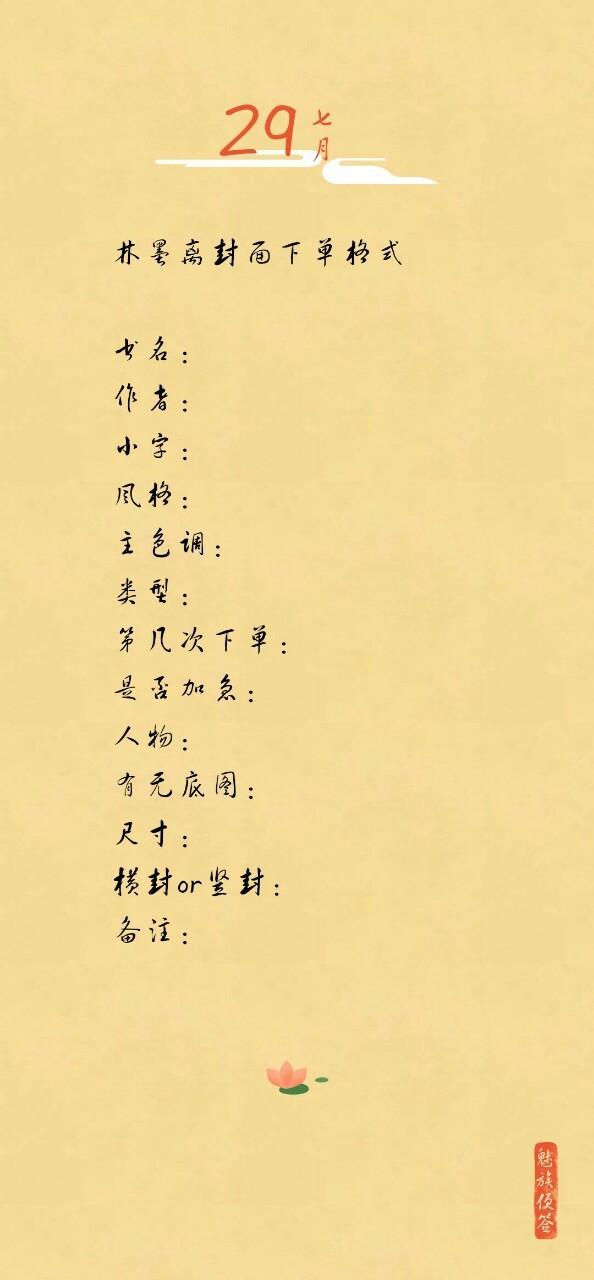 29
七月
林墨离封面下单格式
书名：
作者：
小字：
风格：
主色调：
类型：
第几次下单：
是否加急：
人物：
有无底图：
尺寸：
横封or竖封：
备注：
魅族便签